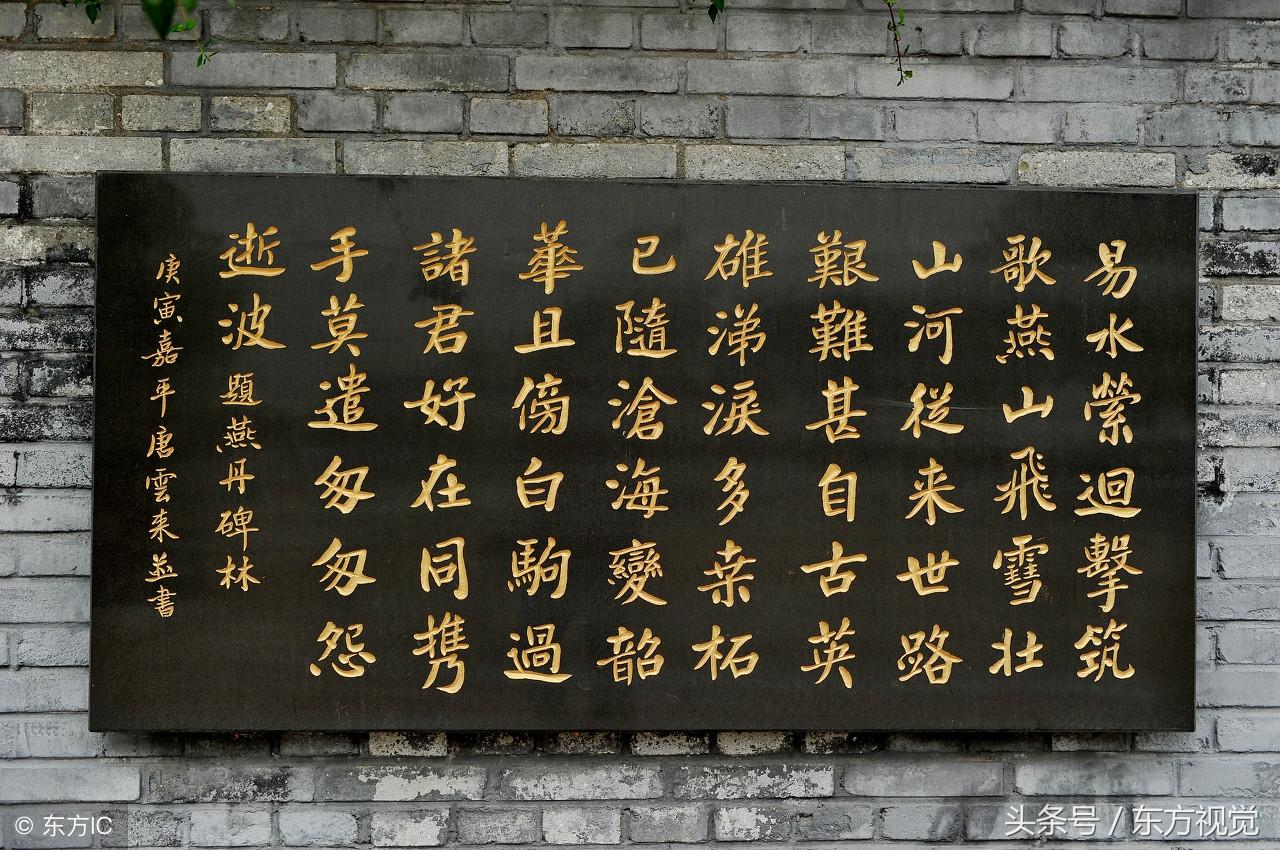 易水縈迴擊筑
歌燕山飛雪壯
山河從来世路
艱難甚自古英
雄涕淚多桒柘
已隨滄海變韶
華且傍白駒過
諸君好在同携
手莫遣匆匆怨
逝波 題燕丹碑林
庚寅嘉平唐雲来並書
© 东方IC
头条号 / 东方视觉